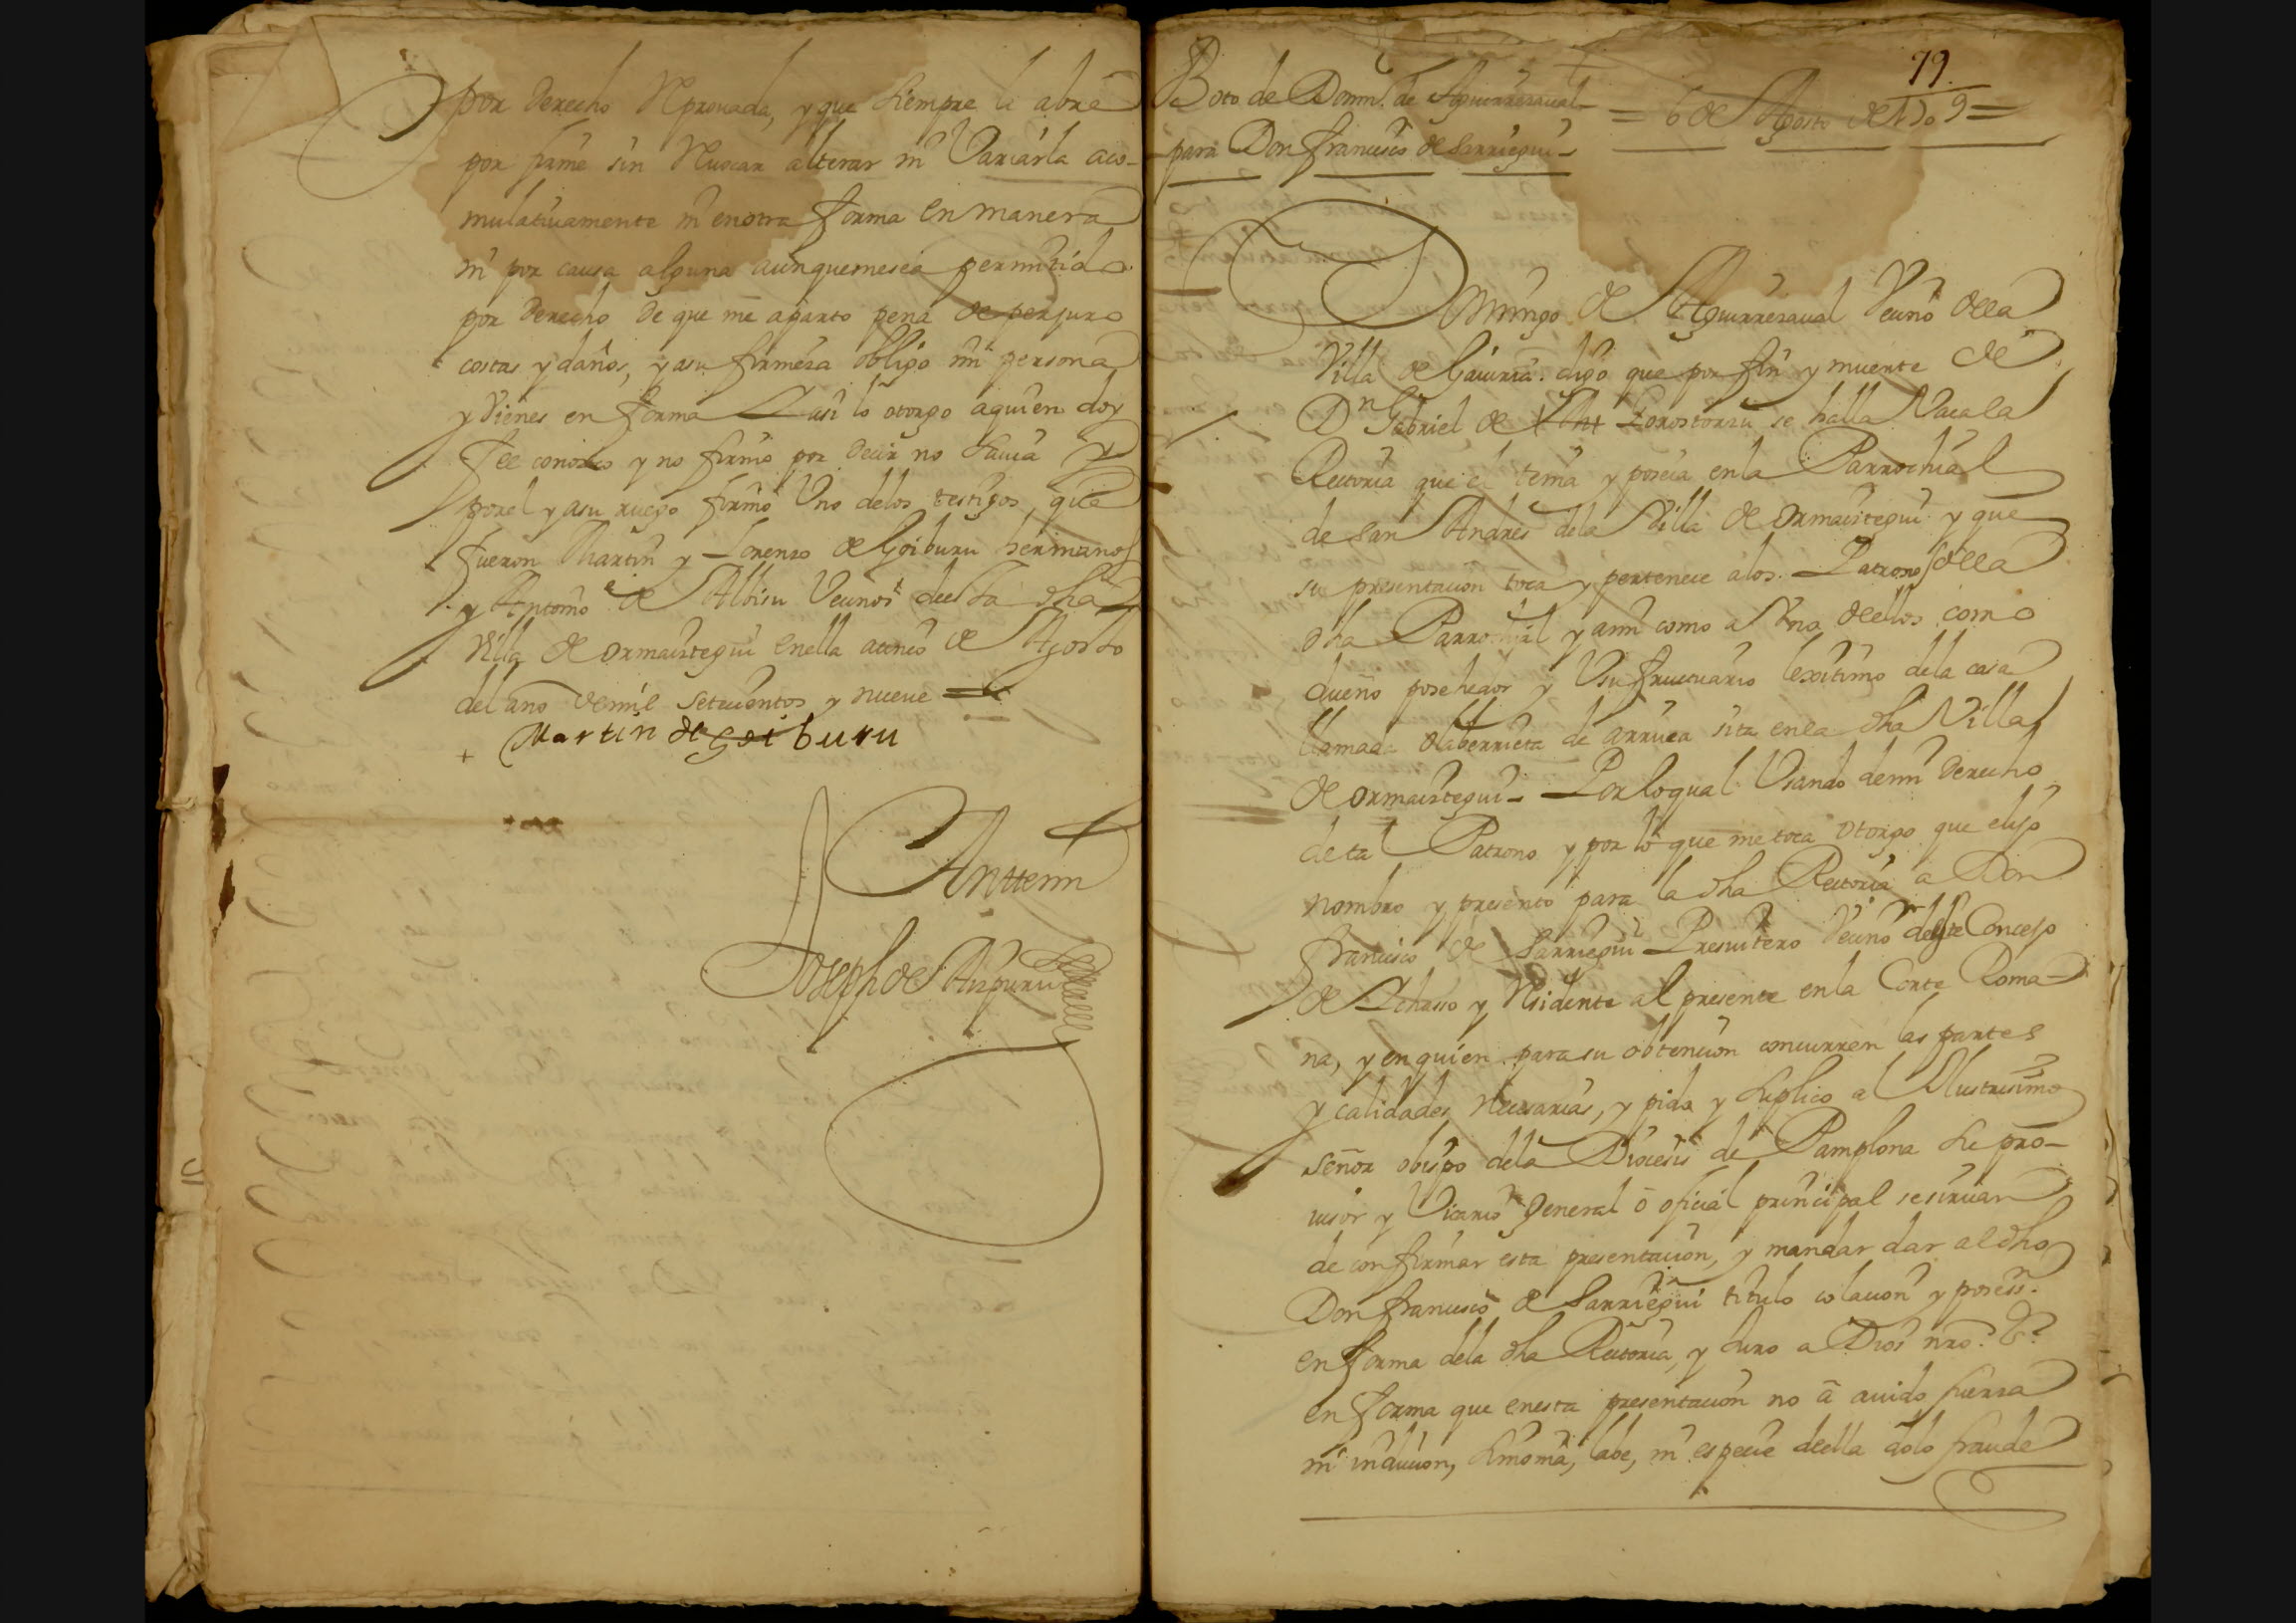 por derecho Reprouada, y que siempre la abre
por firme sin Reuocar alterar ni Variarla acu-
mulatiuamente ni en otra forma en manera
ni por causa alguna aunquemesea permitido
por derecho de que me aparto pena de perjuro
costas y daños, y asu firmeza obligo mi persona
y Vienes en forma Y asi lo otorgo aquien doy
fee conozco y no firmo por decir no sauia y
porel y asu ruego firmo Vno delos testigos, que
fueron Martin y Lorenzo de Goiburu hermanos
y Antonio de Albisu Vecinos de esta dha
Villa de ormaiztegui enella acinco de Agosto
del año demil setecientos y nueue
Martin de goiburu
Antemi
Joseph de Aizpuru
79
Boto de Domin. de Aguirrezaual
para Don francisco de Sarriegui
= 6 de Agosto de 1709 =
Domingo de Aguirrezaual Vecino de la
Villa de Gauiria. digo que por fin y muerte de
Dn Gabriel de Lorostarzu se halla Vaca la
Rectoria que el tenia y poseia enla Parrochial
de san Andres dela Villa de ormaiztegui y que
su presentacion toca y pertenece alos Patronos de la
dha Parrochial y ami como a Vno de ellos como
dueño posehedor y Vsufructuario lexitimo dela casa
llamada olaberrieta de arriuea sita enla dha Villa
de ormaiztegui - Por loqual Vsando demi derecho
de tal Patrono y por lo que me toca otorgo que elijo
nombro y presento para la dha Rectoria a Don
francisco de Sarriegui Presuitero Vecino deeste Concejo
de Lehasso y Residente al presente enla Corte Roma-
na, y en quien para su obtencion concurren las partes
y calidades necesarias, y pido y suplico al Illustrisimo
señor obispo dela Diocesis de Pamplona su pro-
uisor y Vicario General ō oficial principal sesiruan
de confirmar esta presentacion, y mandar dar aldho
Don francisco de Sarriegui titulo colacion y posesn.
en forma dela dha Rectoria, y Juro a Dios nro. Sr.
en forma que enesta presentacion no ā auido fuerza
ni induccion, simonia, labe, ni especie deella dolo fraude